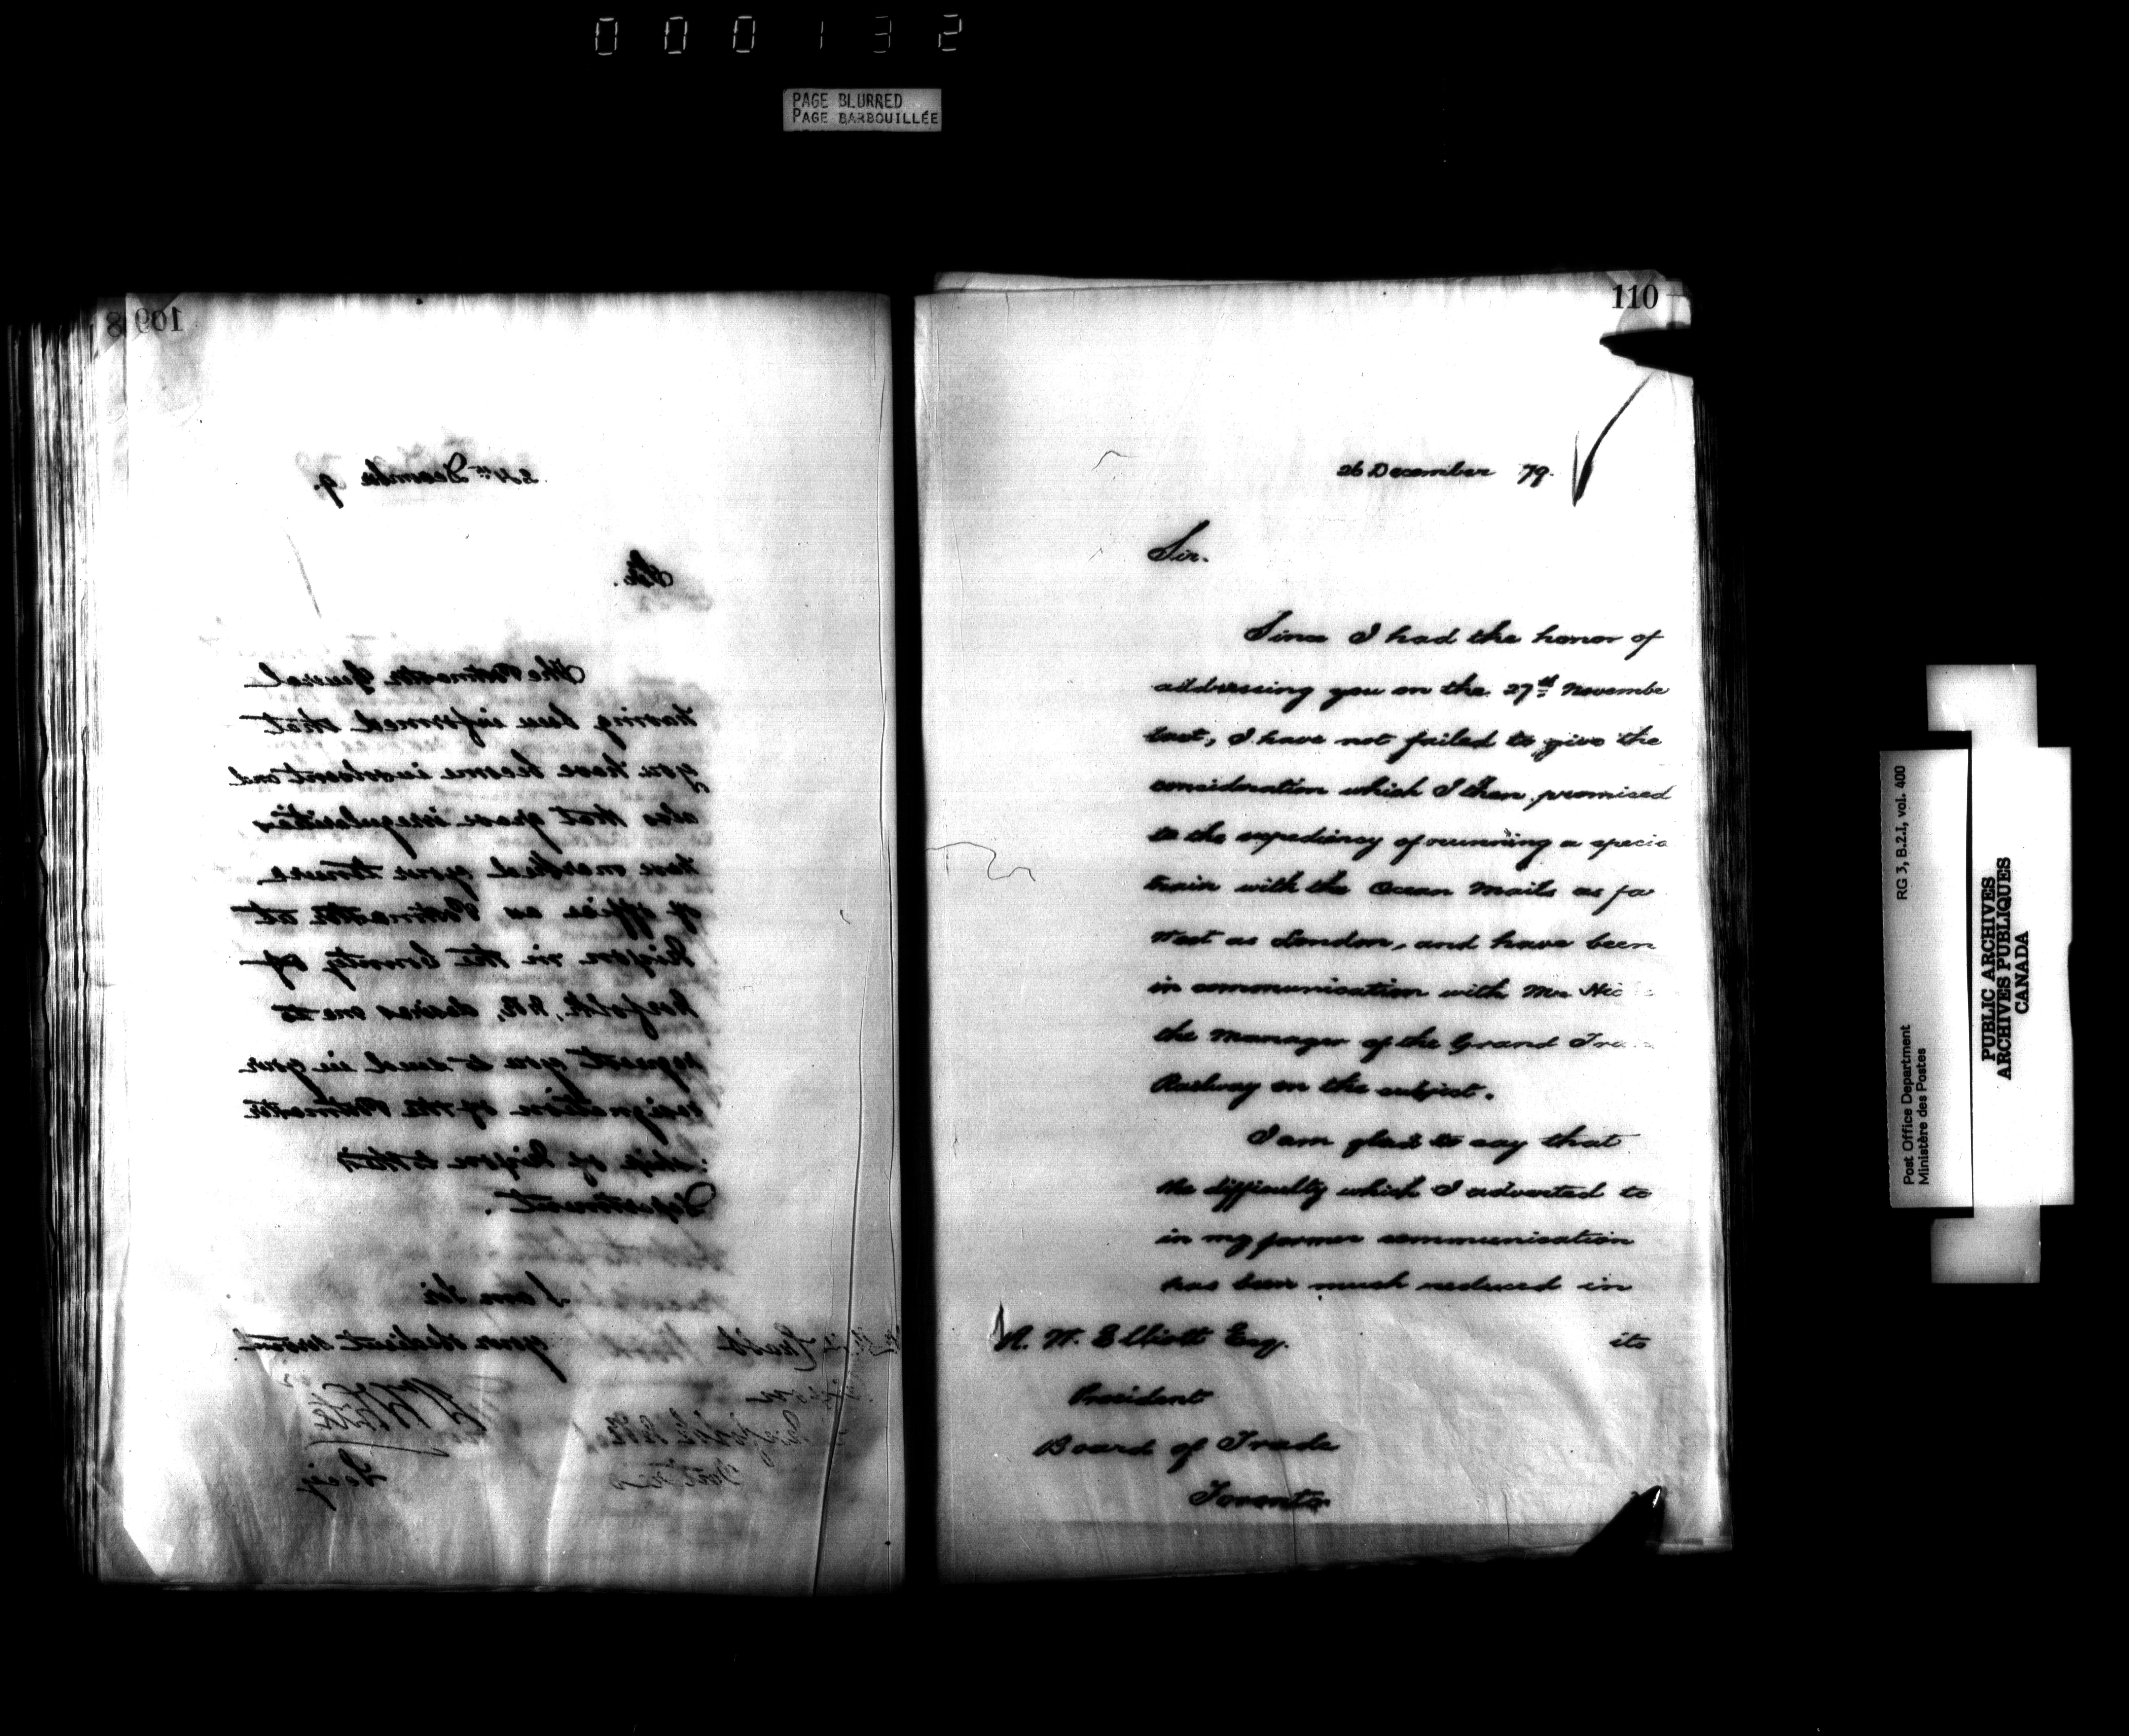 000132
PAGE BLURRED
PAGE BARBOUILLÉE
109
8
24th December 9.
Sir.
The Postmaster General
having been informed that
you have become insolvent and
also that grave irregularities
have marked your tenure
of office as Postmaster at
in the County of
Norfolk, desires me to
request you to send in your
resignation of the Postmaster
ship of to this
Department.
I am Sir
your obedient servant
Secy
110
26 December 79.
Sir.
Since I had the honor of
addressing you on the 27th Novembe
last, I have not failed to give the
consideration which I then promised
to the expediency of running a specia
train with the Ocean Mails as fa
West as London, and have been
in communication with Mr Hic
the Manager of the Grand Tru
Railway on the subject.
I am glad to say that
the difficulty which I adverted to
in my former communication
has been much reduced in
its
R. W. Elliott Esq.
President
Board of Trade
Toronto
Post Office Department
Ministère des Postes
RG 3, B.2.I, vol. 400
PUBLIC ARCHIVES
ARCHIVES PUBLIQUES
CANADA